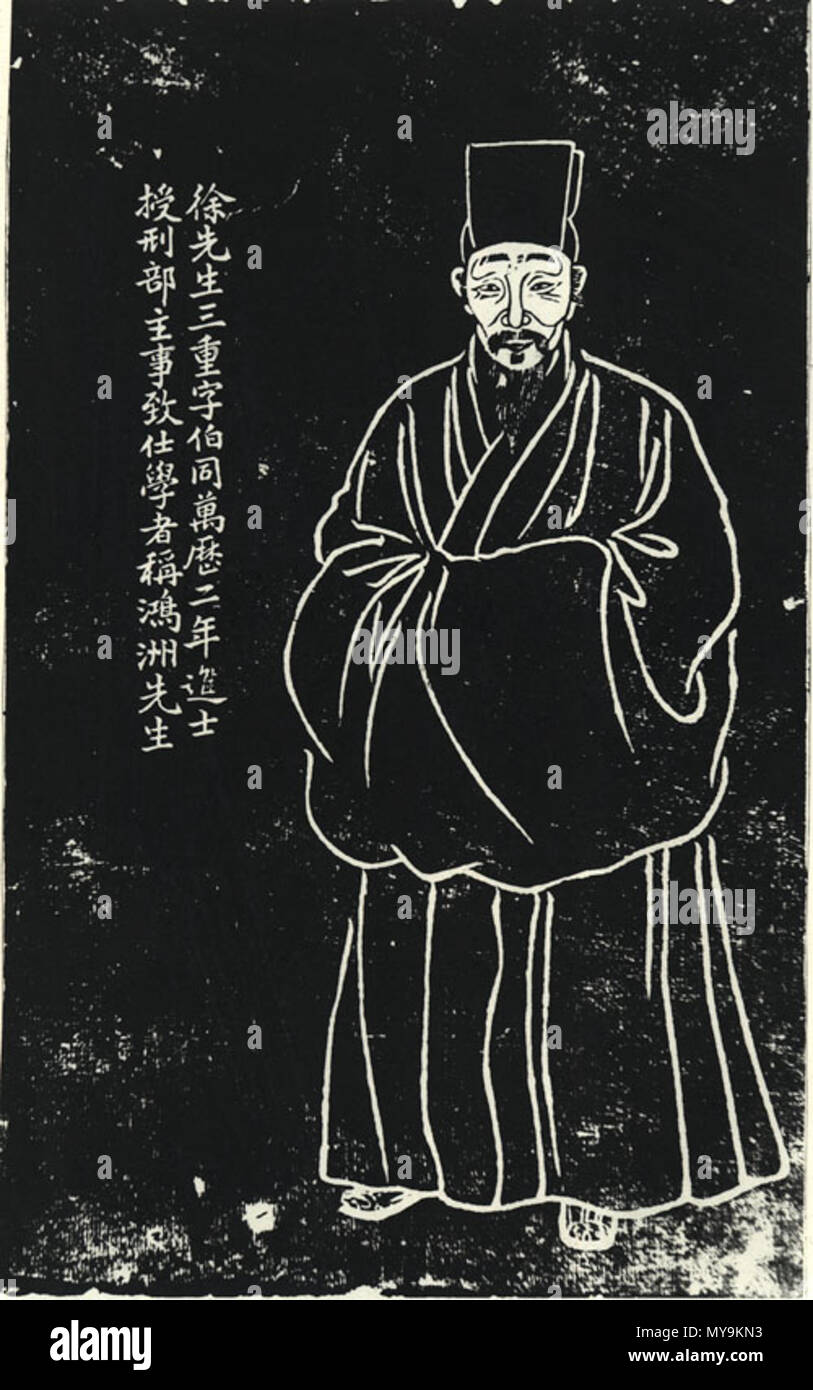 徐先生三重字伯同萬歷二年進士
授刑部主事致仕學者稱鴻洲先生
alamy
alamy
alamy
alamy
Image ID: MY9KN3
www.alamy.com